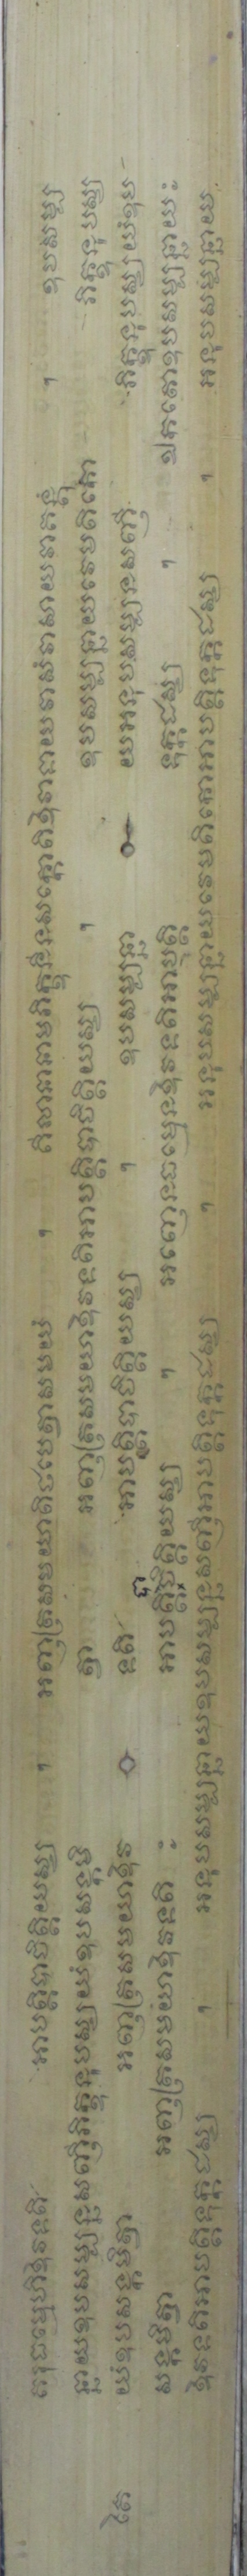 ករុធម្មេហិឱវទតិ អាបត្តិបាចិត្តិយស្ស ។ អញ្ញត្រសមយាតិថបេត្វាសមយំ ។ គិលានានាមភិក្ខុនីនសក្កោតិឱវាទាយវាសំវាសាយវាគន្តុំ ។ ឧបសម្ប
ន្នាយឧបសម្បន្នសញ្ញីភិក្ខុនុបស្សយំឧបសង្កមិ ត្វា អញ្ញត្រសមយាឱវទតិអាបត្តិបាចិត្តិយស្ស ។ ឧបសម្បន្នាយវេមតិកោ ភិក្ខុនុបស្ស
តៃ យំឧបសង្កមិត្វា អញ្ញត្រសមយាឱវ ទតិ អាបត្តិបាចិត្តិយស្ស ។ ឧបសម្បន្នា យអនុបសម្បនសញ្ញី ភិក្ខុនុបស្សយំឧប
សង្កមិត្វា អញ្ញត្រសមយាឱវទតិ ៖ អាបត្តិបាចិត្តិយស្ស ។ អញ្ញេនធម្មេនឱវទតិអាបត្តិ ទុក្កដស្ស ។ ឯកតោឧបសម្បន្នាយ៖
ឱវទតិអាបត្តិទុក្កដស្ស ។ អនុបសម្បន្នាយឧបសម្បន្នសញ្ញីអាបត្តិទុក្កដស្ស ។ អនុបសម្បន្នាយវេមតិកោអាបត្តិទុក្កដស្ស ។ អនុបសម្បន្នាយ